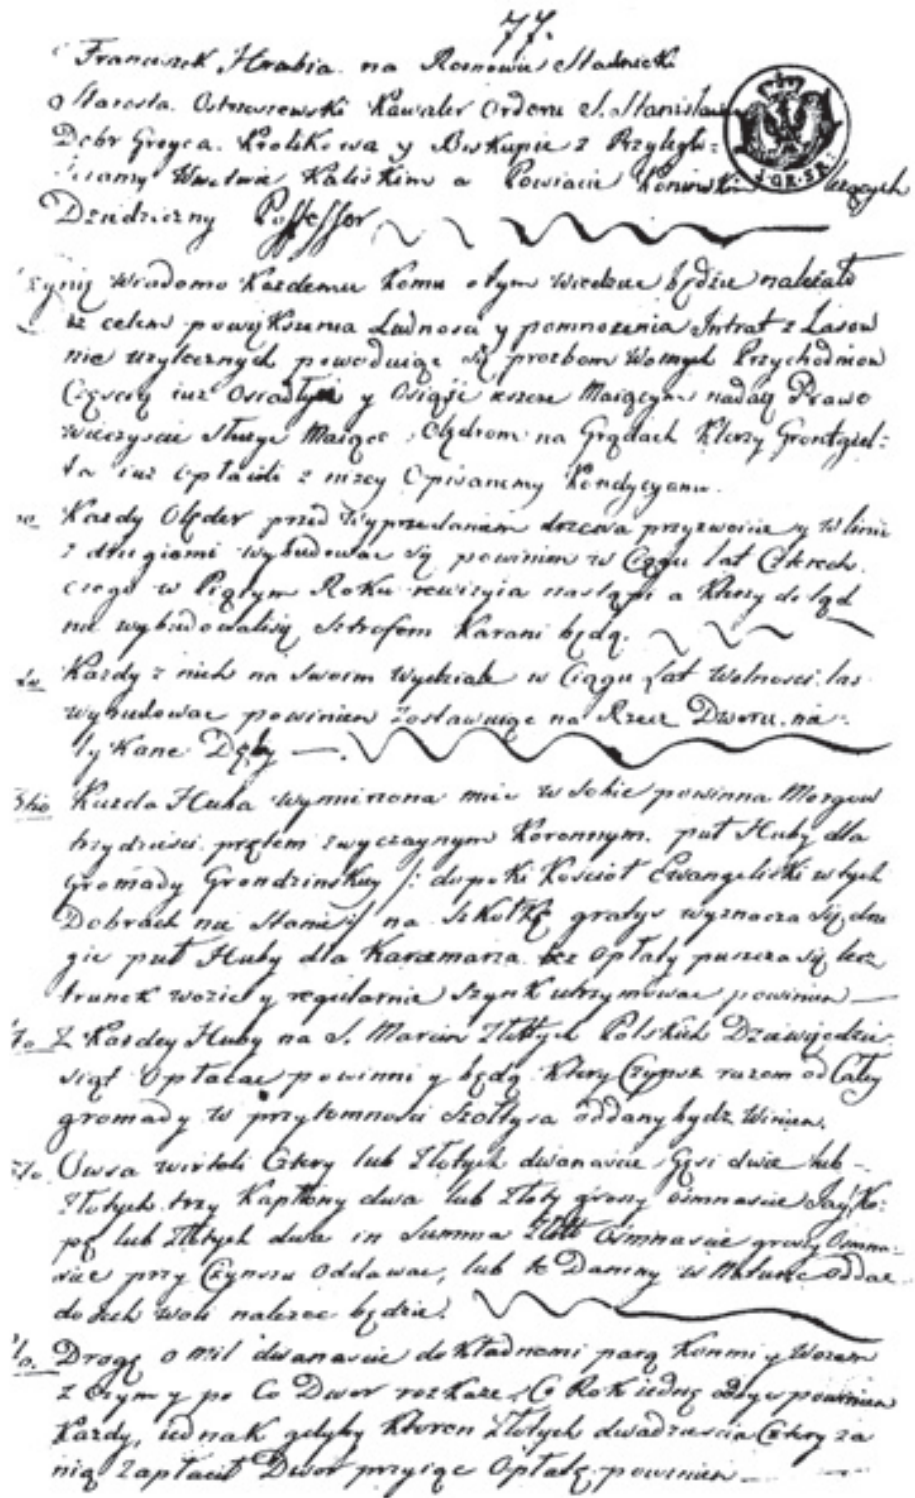 77.
Franciszek Hrabia na Rosnowie Stadnicki
Starosta Ostrzeszowski Kawaler Orderu S. Stanisława
Dobr Grojca Krolikowa y Biskupie z Przyległo=
sciamy Wwztwie Kaliskim a Powiacie Koninskim leżących
Dziedziczny Possessor
4.GR.SR:
Czynię wiadomo każdemu komu otym wiedziec będzie należało
iż celem powiększenia Ludnosci y pomnożenia Intrat z Lasow
nie użytecznych powoduiąc się prozbom Wolnych Przychodniow
Częscią iuż Osiadłych y Osiąść ieszcze Maiącym nadaę Prawo
wieczyscie służyc Maiące Olędrom na Grądach Ktorzy Grontgiel=
ta iuż opłacili z niżey Opisanemy Kondycyami.
Każdy Olęder przed wyprzedaniem drzewa przyzwoicie y w linii
z drugiemi wybudowac się powinien w Ciągu lat Czterech
czego w Piątym Roku rewizyia nastąpi a Ktorzy dotąd
nie wybudowalisię sztrofem Karani będą.
2do Każdy z nich na swoim Wydziale w Ciągu Lat Wolnosci las
wykudowac powinien zostawuiąc na Rzecz Dworu nie=
tykane Dęby
3tio Kazda Huba wymierzona miec w sobie powinna Morgow
trzydziesci prętem zwyczaynym Koronnym. puł Huby dla
Gromady Grondzinskiey /: dopoki Kosciół Ewangelicki w tych
Dobrach nie stanie :/ na Szkołkę gratys wyznacza się, dru
gie puł Huby dla Karczmarza bez Opłaty puszcza się, lecz
trunek wozic y regularnie Szynk utrzymowac powinien
4to Z Każdey Huby na S. Marcin Złotych Polskich Dziewiędzie
siąt Opłacac powinni y będą. Ktory Czynsz razem od Całey
gromady w przytomnosci Szołtysa oddany bydz Winien.
5to. Owsa wierteli Cztery lub Złotych dwanascie, Gęsi dwie lub
Złotych trzy Kapłony dwa lub Złoty groszy osmnascie Jay Ko=
pę lub Złotych dwa in Summa Złott Osmnascie groszy Osmna=
scie przy Czynszu Oddawac, lub te Daniny w Naturze Oddac
do Jch woli nalezec będzie.
6to. Drogę o mil dwanascie dokładnemi parą Konmi y Wozem
z Czym y po Co Dwor rozkaże, Co Rok iednę odbyc powinien
Każdy, iednak gdyby Ktoren Złotych dwadziescia Cztery za
nią Zapłacił Dwor przyiąc Opłatę powinien